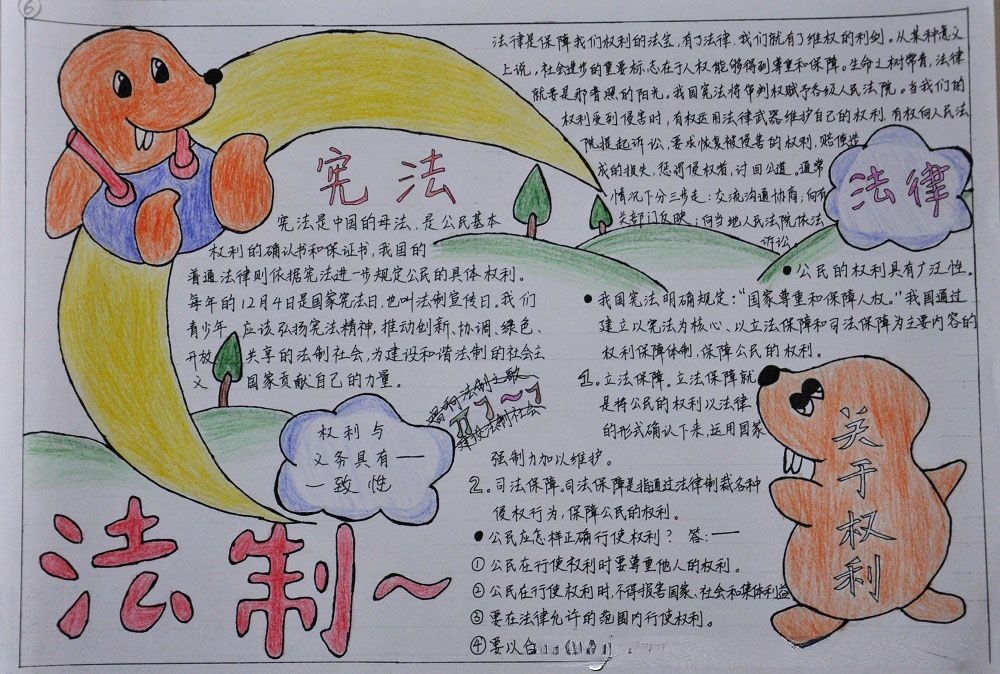 6
法律是保障我们权利的法宝,有了法律,我们就有了维权的利剑。从某种意义
上说,社会进步的重要标志在于人权能够得到尊重和保障。生命之树常青,法律
就要是那普照的阳光。我国宪法将审判权赋予各级人民法院。当我们的
权利受到侵害时,有权运用法律武器维护自己的权利,有权向人民法
院提起诉讼,要求恢复被侵害的权利,赔偿造
成的损失,惩罚侵权者,讨回公道。通常
情况下分三步走:交流沟通协商;向有
关部门反映;向当地人民法院依法
诉讼
法律
宪法
宪法是中国的母法,是公民基本
权利的确认书和保证书,我国的
普通法律则依据宪法进一步规定公民的具体权利。
每年的12月4日是国家宪法日,也叫法制宣传日。我们
青少年,应该弘扬宪法精神,推动创新、协调、绿色、
开放、共享的法制社会,为建设和谐法制的社会主
义国家贡献自己的力量。
唱响法制之歌
建设法制社会
权利与
义务具有——
一致性
法制~
●公民的权利具有广泛性。
●我国宪法明确规定:“国家尊重和保障人权。”我国通过
建立以宪法为核心、以立法保障和司法保障为主要内容的
权利保障体制,保障公民的权利。
1。立法保障。立法保障就
是将公民的权利以法律
的形式确认下来,运用国家
强制力加以维护。
2。司法保障。司法保障是指通过法律制裁各种
侵权行为,保障公民的权利。
●公民应怎样正确行使权利? 答:——
①公民在行使权利时要尊重他人的权利。
②公民在行使权利时,不得损害国家、社会和集体利益
③要在法律允许的范围内行使权利。
④要以合
关于权利